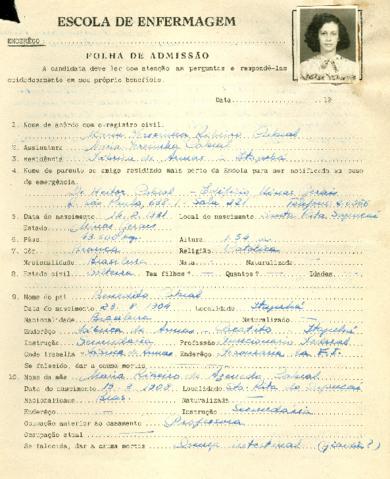 ESCOLA DE ENFERMAGEM
ENDERÊÇO
FOLHA DE ADMISSÃO
A candidata deve ler com atenção as perguntas e respondê-las
cuidadosamente em seu próprio benefício.
Data 19
1. Nome de acôrdo com o registro civil.
Maria Ribeiro Cabral
2. Assinatura Maria Cabral
3. Residência Fábrica de Armas - Itajubá
4. Nome de parente ou amigo residindo mais perto da Escola para ser notificado em caso
de emergência.
Dr. Heitor Cabral - Edifício Minas Gerais
R. São Paulo, Sala Telefone:
5. Data do nascimento Local do nascimento Santa Rita Sapucaí
Estado Minas Gerais
6. Pêso Altura 1,54 m
7. Côr Branca Religião Católica
Nacionalidade Brasileira Nata Naturalizada
8. Estado civil Solteira Tem filhos? Quantos? Idades
9. Nome do pai Benedito Cabral
Data do nascimento 23-8-1904 Localidade Itajubá
Nacionalidade Brasileira Naturalizado
Enderêço Fábrica de Armas Itajubá
Instrução Secundária Profissão Funcionário Federal
Onde trabalha Fábrica de Armas Enderêço
Se falecido, dar a causa mortis
10. Nome da mãe Maria Ribeiro de Azevedo Cabral
Data do nascimento Localidade Sta. Rita do Sapucaí
Nacionalidade Bras. Naturalizada
Enderêço Instrução Secundária
Ocupação anterior ao casamento Professora
Ocupação atual
Se falecida, dar a causa mortis Doença intestinal